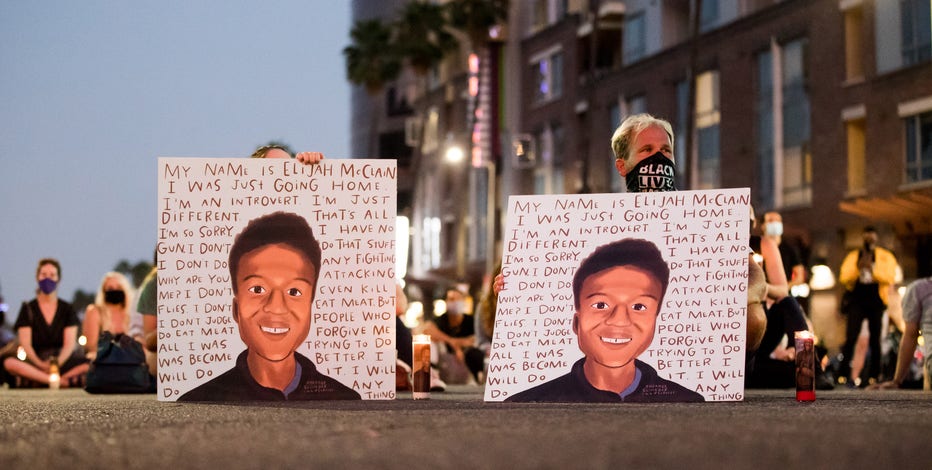 MY NAME IS ELIJAH McCLAIN
I WAS JUST GOING HOME.
I'M AN INTROVERT. I'M JUST
DIFFERENT. THAT'S ALL
I'M SO SORRY I HAVE NO
GUN I DON'T DO THAT STUFF
I DON'T DO ANY FIGHTING
WHY ARE YOU ATTACKING
ME? I DON'T EVEN KILL
FLIES I DON'T EAT MEAT. BUT
I DON'T JUDGE PEOPLE WHO
DO EAT MEAT FORGIVE ME.
I WAS TRYING TO DO
BECOME BETTER I
WILL DO ANY
THING
BLACK
LIVES
MY NAME IS ELIJAH McCLAIN
I WAS JUST GOING HOME.
I'M AN INTROVERT. I'M JUST
DIFFERENT. THAT'S ALL
I'M SO SORRY I HAVE NO
GUN I DON'T DO THAT STUFF
I DON'T DO ANY FIGHTING
WHY ARE YOU ATTACKING
ME? I DON'T EVEN KILL
FLIES I DON'T EAT MEAT. BUT
I DON'T JUDGE PEOPLE WHO
DO EAT MEAT FORGIVE ME.
I WAS TRYING TO
BECOME BETTER I
WILL DO ANY
THING